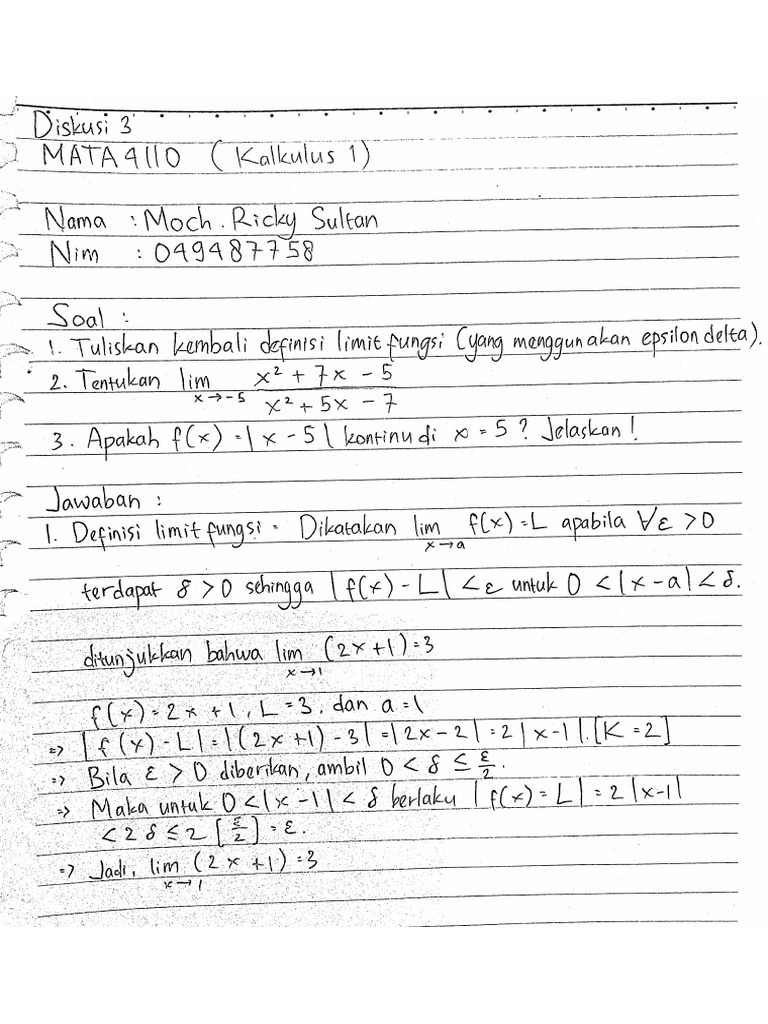 Diskusi 3
MATA4110 ( Kalkulus 1)
Nama : Moch. Ricky Sultan
Nim : 049487758
Soal :
1. Tuliskan kembali definisi limit fungsi (yang menggunakan epsilon delta).
2. Tentukan lim x→-5 (x² + 7x - 5)/(x² + 5x - 7)
3. Apakah f(x) = |x - 5| kontinu di x = 5 ? Jelaskan !
Jawaban :
1. Definisi limit fungsi = Dikatakan lim x→a f(x) = L apabila ∀ε > 0
terdapat δ > 0 sehingga |f(x) - L| < ε untuk 0 < |x - a| < δ.
ditunjukkan bahwa lim x→1 (2x + 1) = 3
f(x) = 2x + 1, L = 3, dan a = 1
=> |f(x) - L| = |(2x + 1) - 3| = |2x - 2| = 2|x - 1|. [K = 2]
=> Bila ε > 0 diberikan, ambil 0 < δ ≤ ε/2.
=> Maka untuk 0 < |x - 1| < δ berlaku |f(x) = L| = 2|x - 1|
< 2δ ≤ 2 [ε/2] = ε.
=> Jadi, lim x→1 (2x + 1) = 3